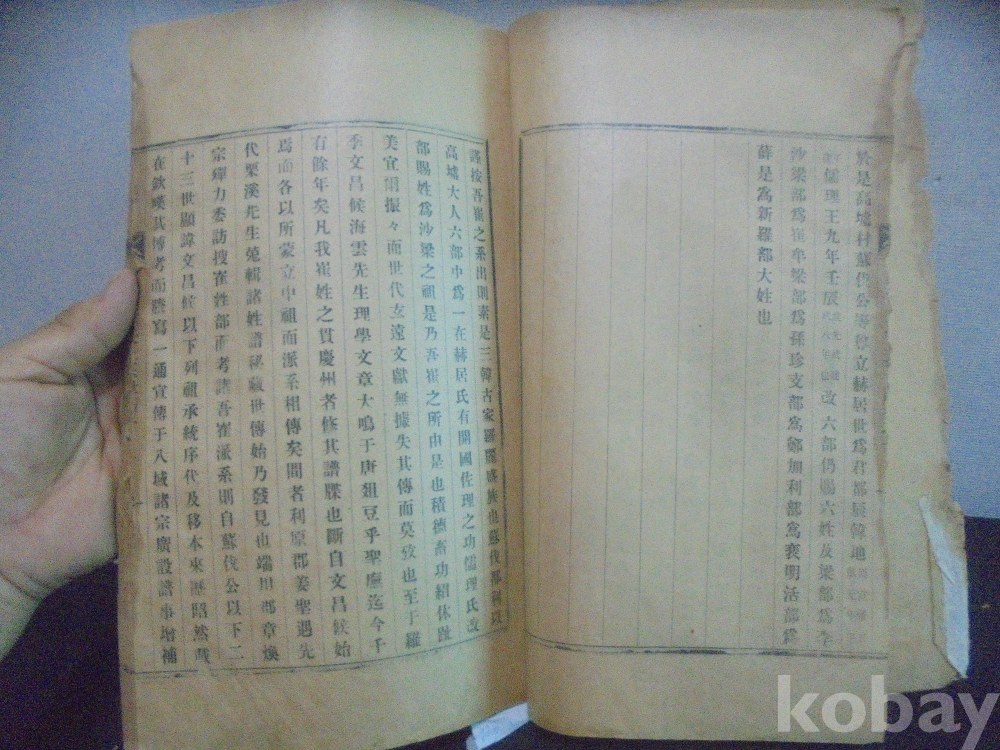 於是高墟村蘇伐公等奪立赫居世爲君都辰韓地
儒理王九年壬辰 改六部仍賜六姓及梁部爲李
沙梁部爲崔牟梁部爲孫珍支部爲鄭加利部爲裵明活部爲
薛是爲新羅部大姓也
謹按吾崔之系出則素是三韓古家羅麗盛族也蘇伐都利以
高墟大人六部中爲一在赫居氏有開國佐理之功儒理氏改
部賜姓爲沙梁之祖是乃吾崔之所由是也積德畜功紹休趾
美宜 振々而世代玄遠文獻無據失其傳而莫攷也至于羅
季文昌候海雲先生理學文章大鳴于唐俎豆乎聖廡迄今千
有餘年矣凡我崔姓之貫慶州者修其譜牒也斷自文昌候始
焉而各以所蒙立中祖而派系相傳矣間者利原郡姜聖遇先
代栗溪先生蒐輯諸姓譜秘藏世傳始乃發見也端川郡章煥
宗 力委訪搜崔姓部而考 吾崔派系則自蘇伐公以下二
十三世顯諱文昌候以下列祖承統序代及移本來歷昭然載
在欽嘆其博考而謄寫一通宣傳于八域諸宗廣設譜事增補
kobay